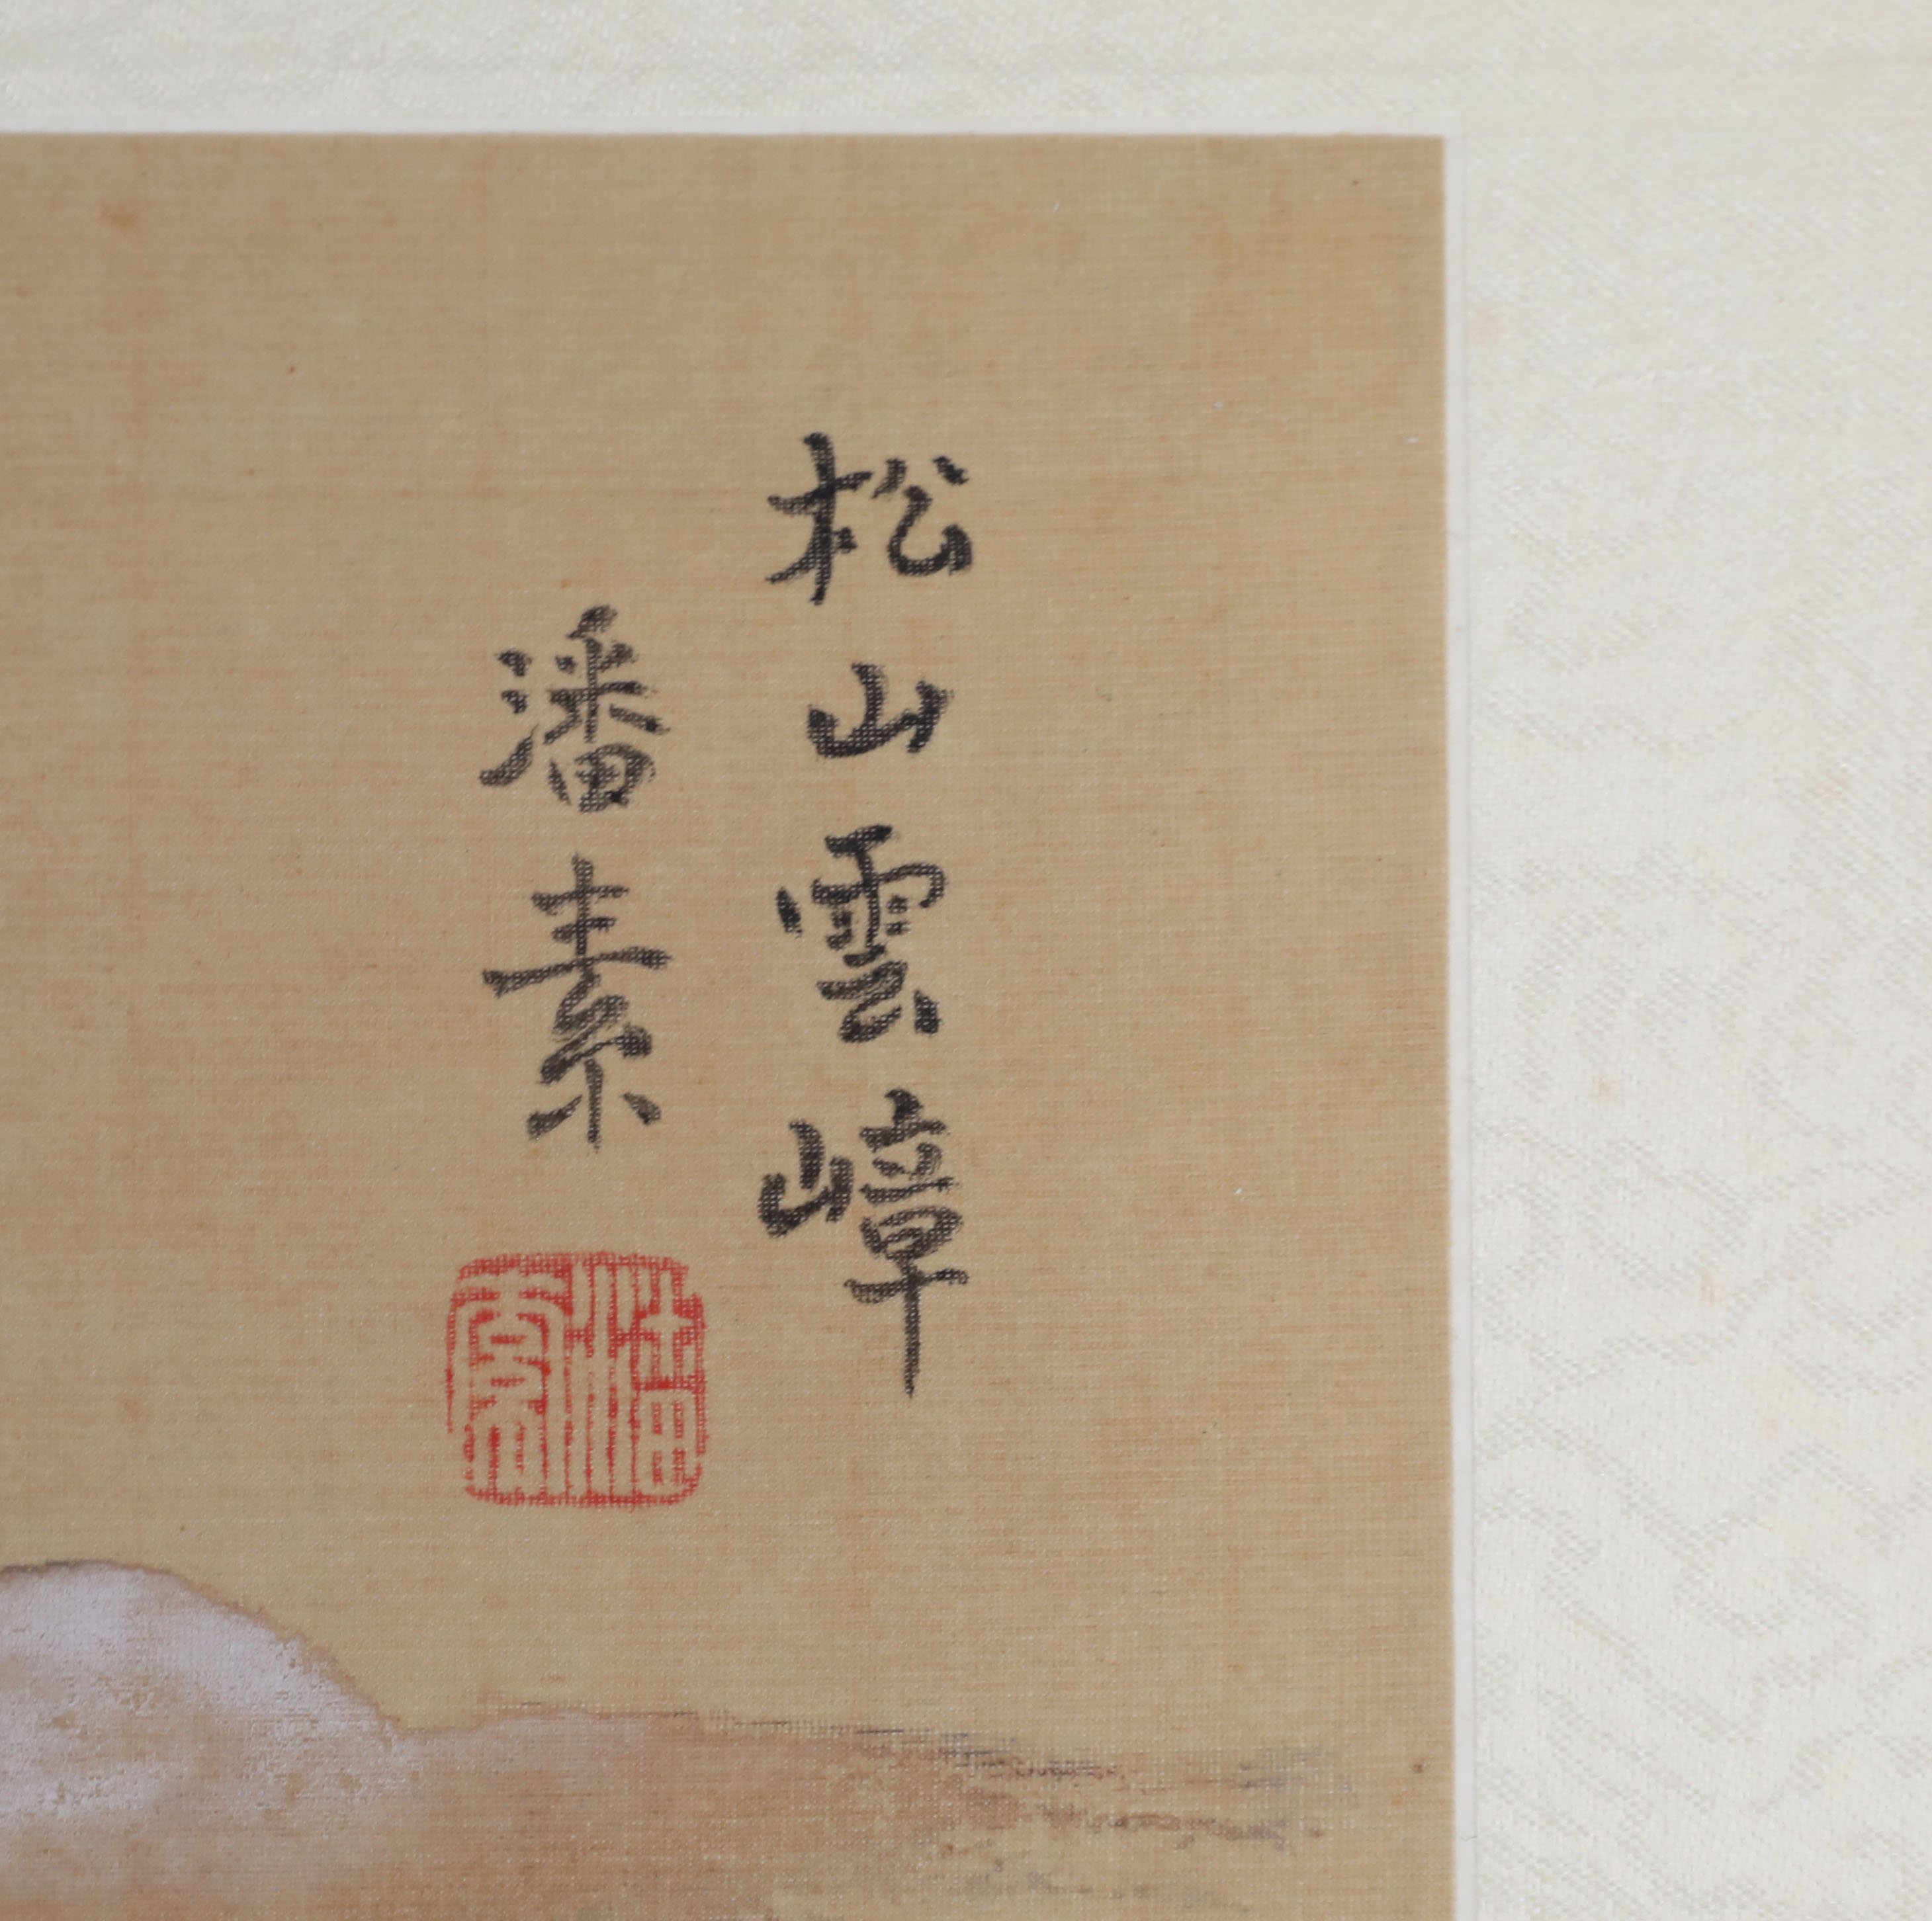 松山雲嶂
潘素